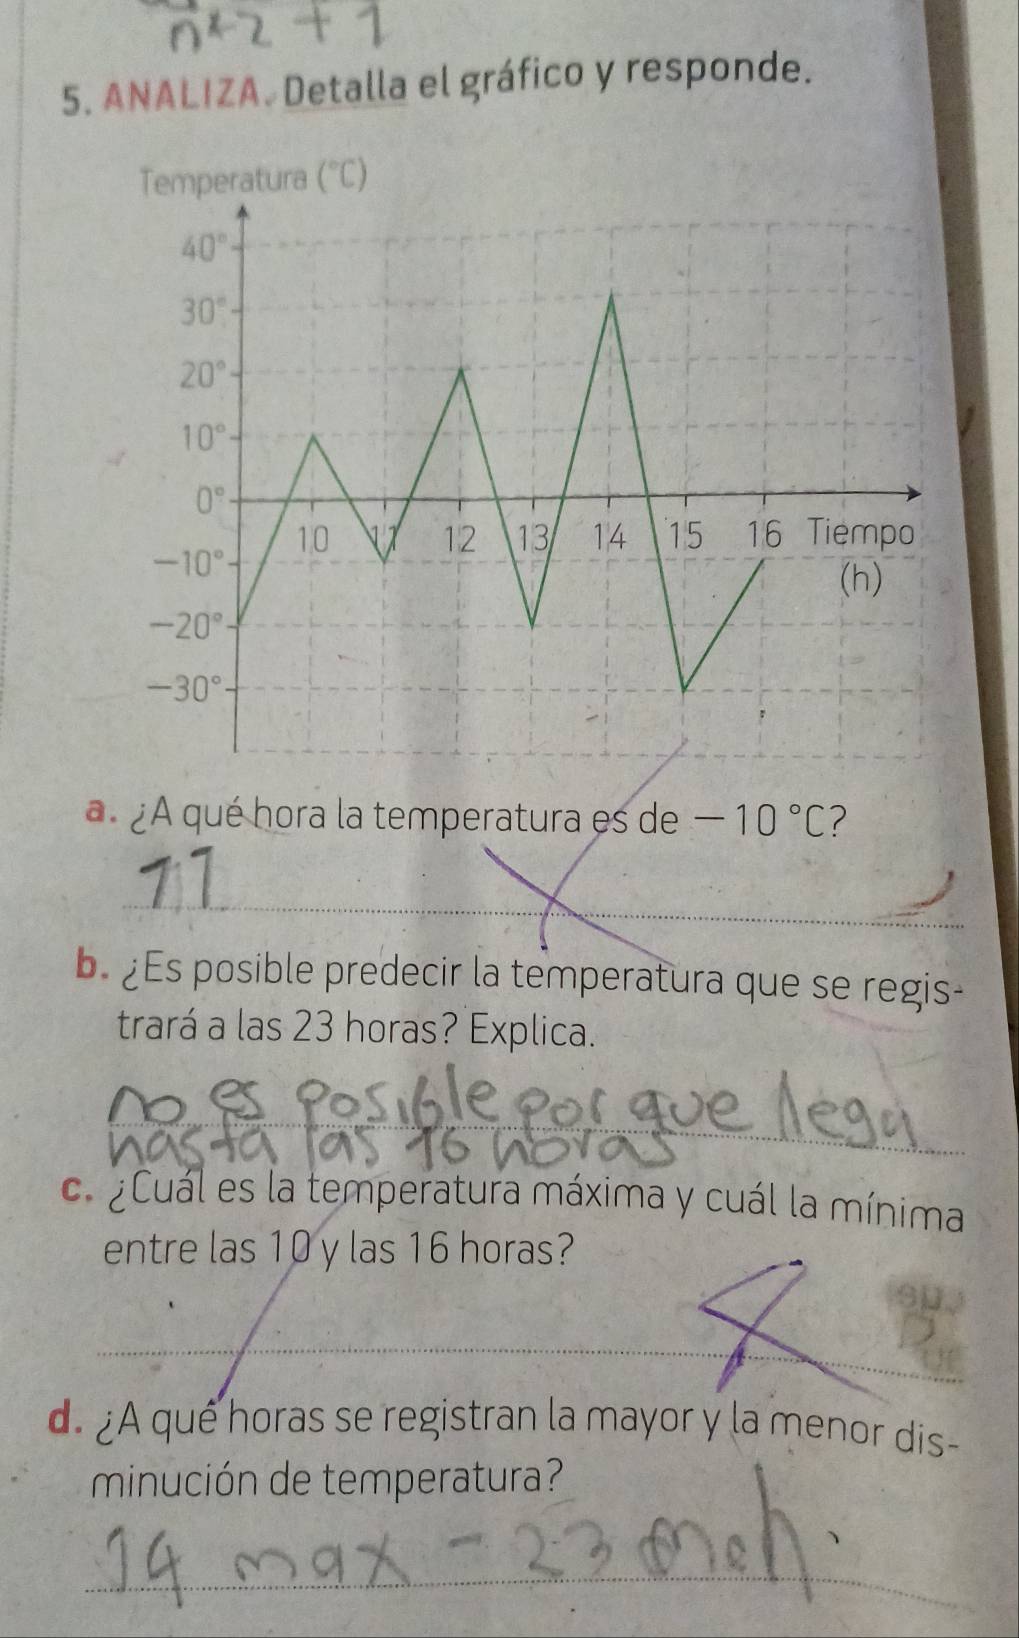 n×2 + 1
5. ANALIZA. Detalla el gráfico y responde.
Temperatura (°C)
40°
30°
20°
10°
0°
10 11 12 13 14 15 16 Tiempo
(h)
−10°
−20°
−30°
a. ¿A qué hora la temperatura es de − 10 °C?
11
b. ¿Es posible predecir la temperatura que se regis-
trará a las 23 horas? Explica.
no es posible por que lega
hasta las 16 horas
c. ¿Cuál es la temperatura máxima y cuál la mínima
entre las 10 y las 16 horas?
d. ¿A qué horas se registran la mayor y la menor dis-
minución de temperatura?
14 max - 23